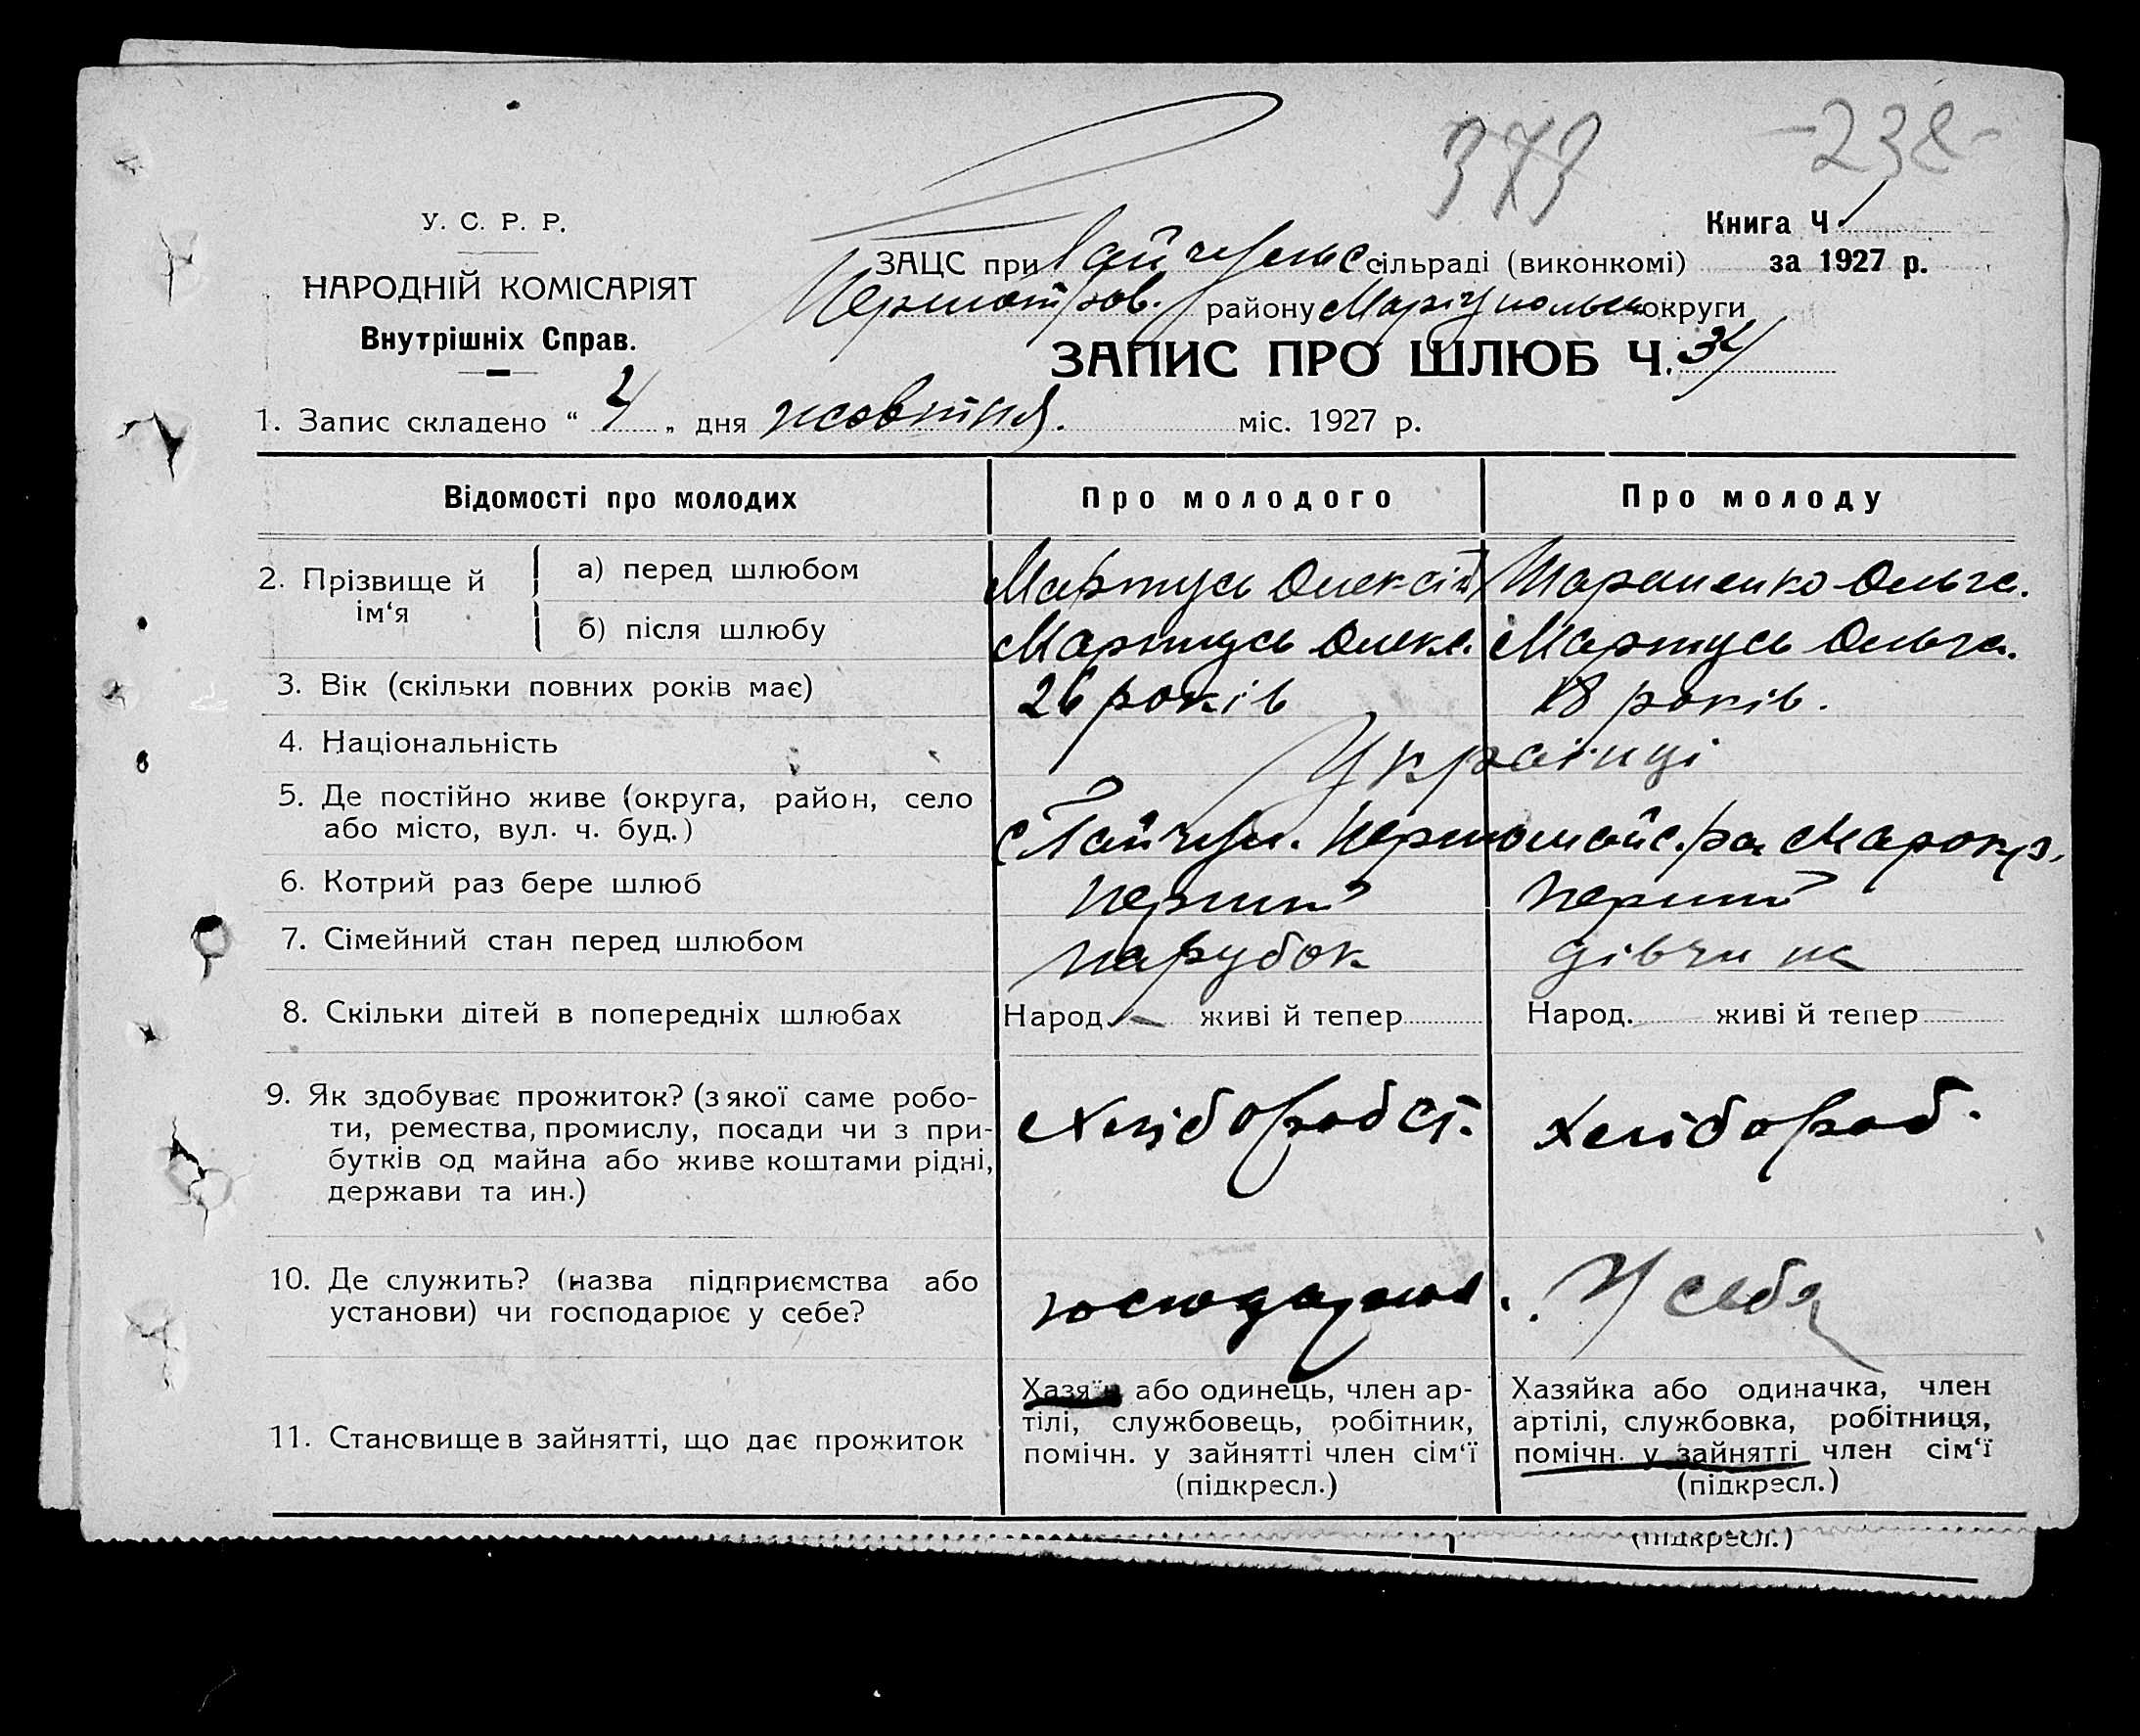 373 -238-
У. С. Р. Р.
Книга Ч. 1
НАРОДНІЙ КОМІСАРІЯТ
ЗАЦС при Гайчульс сільраді (виконкомі) за 1927 р.
району Маріупольськ округи
Внутрішніх Справ.
ЗАПИС ПРО ШЛЮБ Ч. 34
1. Запис складено “ 4 „ дня жовтня. міс. 1927 р.
Відомості про молодих Про молодого Про молоду
2. Прізвище й ім‘я
а) перед шлюбом Мартусь Олексій Ольга.
б) після шлюбу Мартусь Олекс. Мартусь Ольга.
3. Вік (скільки повних років має) 26 років 18 років.
4. Національність Українці
5. Де постійно живе (округа, район, село
або місто, вул. ч. буд.) с Гайчул. Першомайс. ра
6. Котрий раз бере шлюб перший перший
7. Сімейний стан перед шлюбом парубок дівчина
8. Скільки дітей в попередніх шлюбах Народ. — живі й тепер Народ. живі й тепер
9. Як здобуває прожиток? (з якої саме робо-
ти, ремества, промислу, посади чи з при-
бутків од майна або живе коштами рідні,
держави та ин.)
Хліборобст. Хлібороб.
10. Де служить? (назва підприємства або
установи) чи господарює у себе?
У себя
11. Становище в зайнятті, що дає прожиток
Хазяїн або одинець, член ар-
тілі, службовець, робітник,
помічн. у зайнятті член сім‘ї
(підкресл.)
Хазяйка або одиначка, член
артілі, службовка, робітниця,
помічн. у зайнятті член сім‘ї
(підкресл.)
(підкресл.)